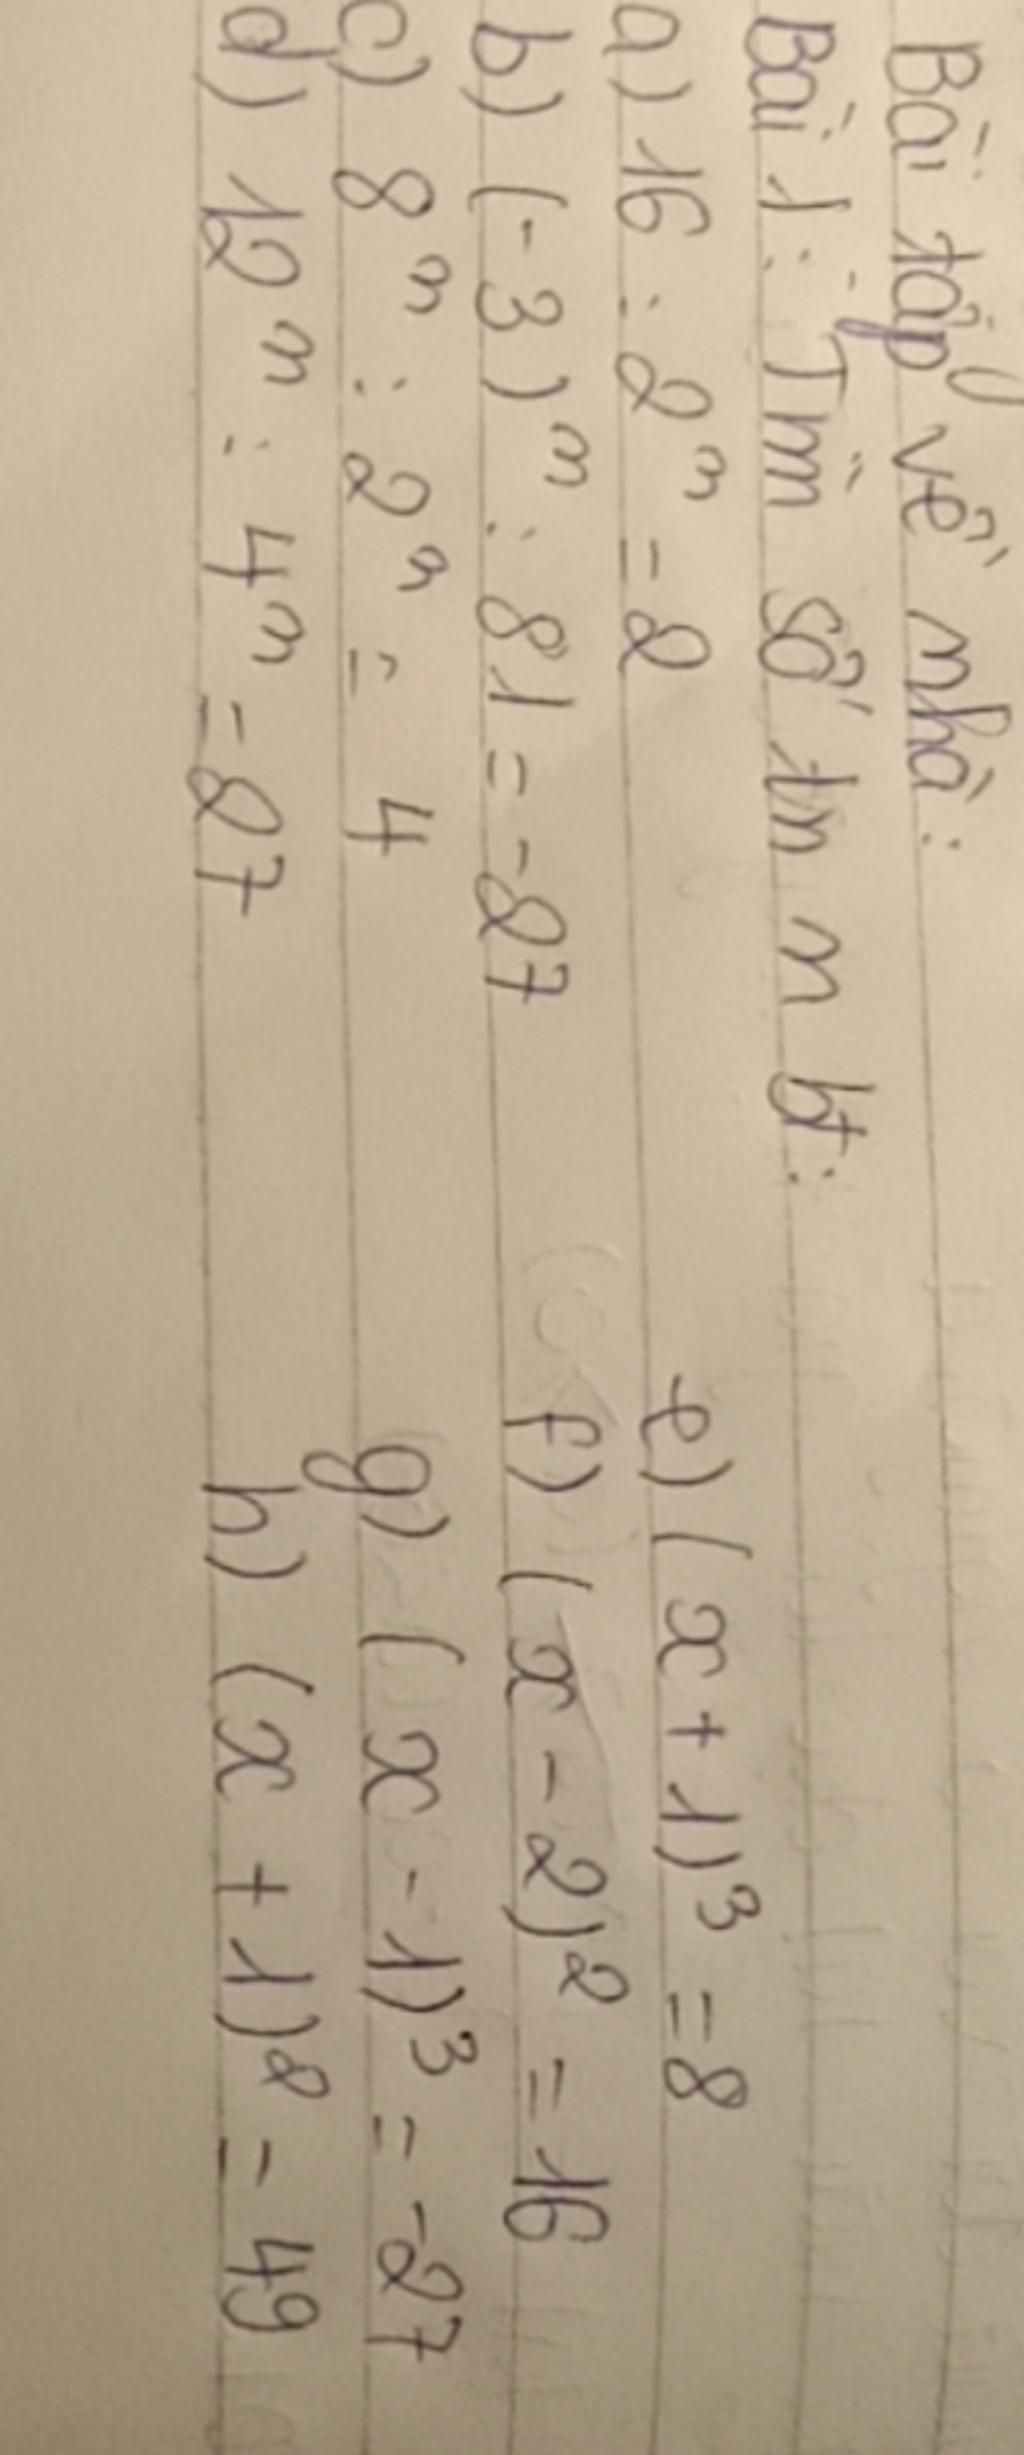 Bài tập về nhà:
Bài 1: Tìm số tn n bt:
a) 16 : 2ⁿ = 2
b) (-3)ⁿ : 81 = -27
c) 8ⁿ : 2ⁿ = 4
d) 12ⁿ : 4ⁿ = 27
e) (x + 1)³ = 8
f) (x - 2)² = 16
g) (x - 1)³ = -27
h) (x + 1)² = 49